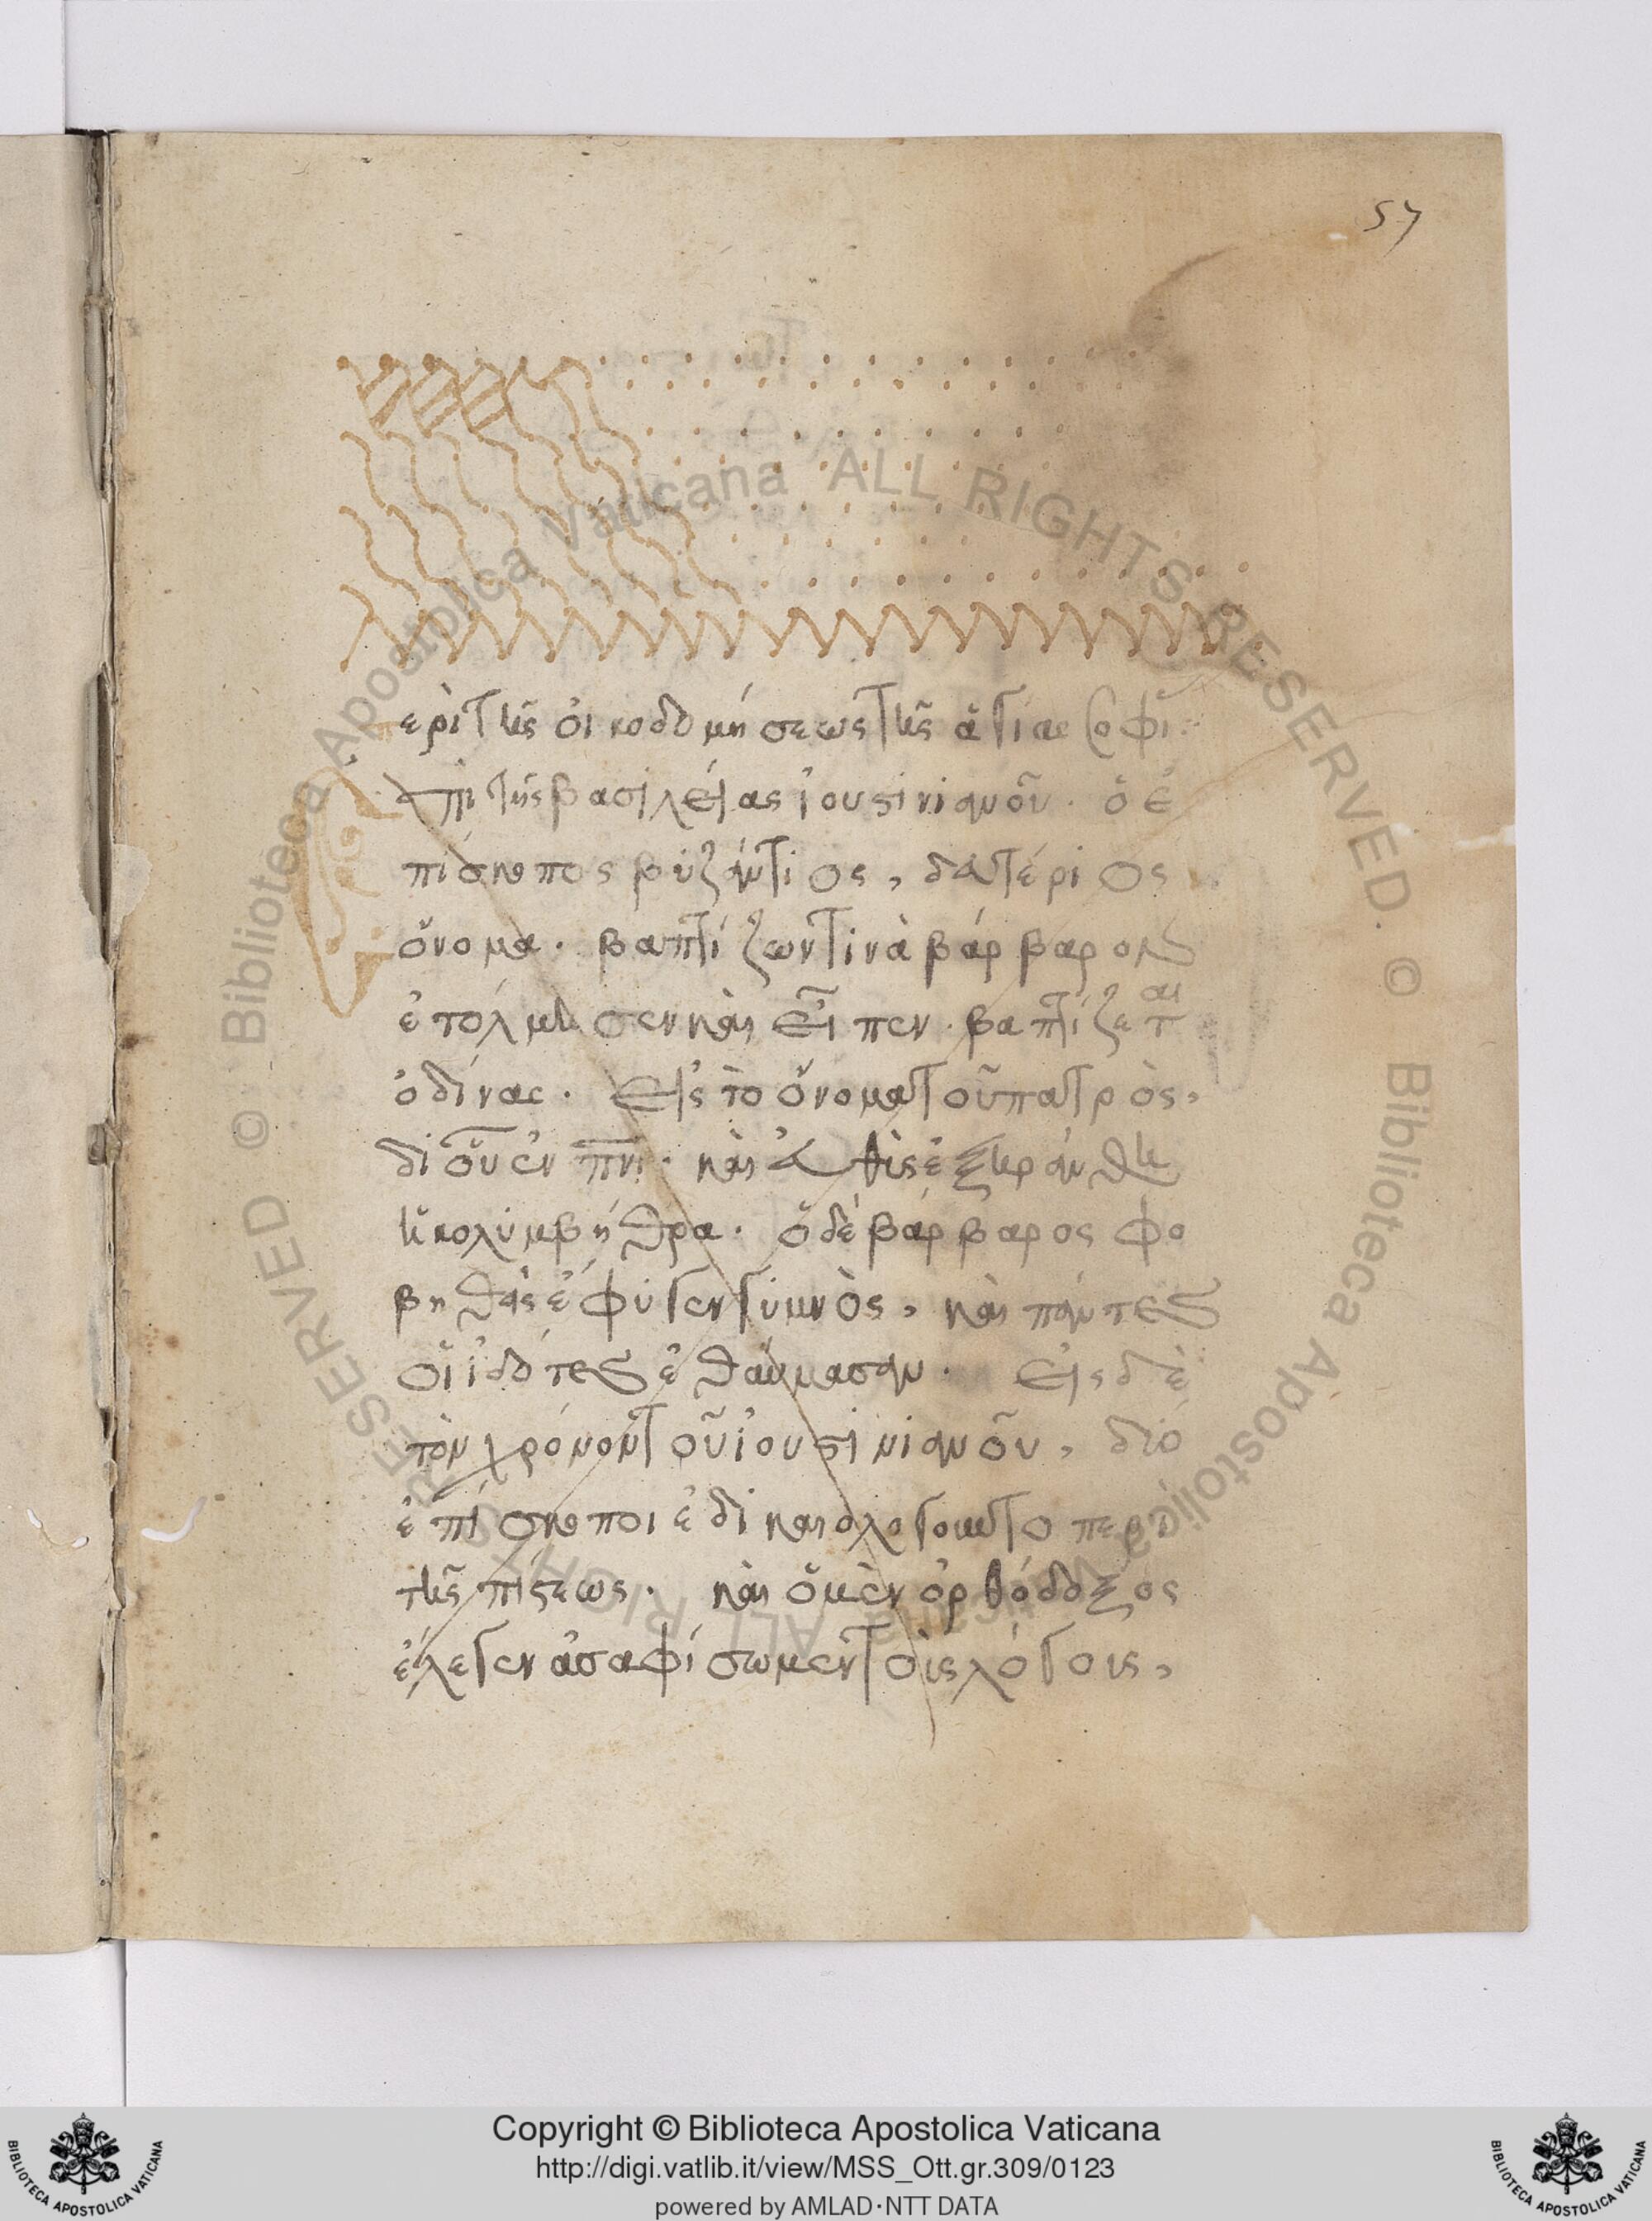 57
ερὶ τῆς οἰκοδομήσεως τῆς ἁγίας σοφί
ἐπὶ τῆς βασιλείας ἰουστινιανοῦ. ὁ ἐ
πίσκοπος βυζάντιος, δευτέριος
ὄνομα. βαπτίζων τινὰ βάρβαρον
ἐτόλμησεν καὶ εἶπεν. βαπτίζεται
ὁδίνας. εἰς τὸ ὄνομα τοῦ πατρὸς,
δι οὗ ἐν πνι. καὶ εὐθὺς ἐξηράνθη
ἡ κολύμβήθρα. ὁ δὲ βάρβαρος φο
βηθεὶς ἔφυγεν γυμνὸς, καὶ πάντες
οἱ ἰδότες ἐθαύμασαν. εἰς δὲ
τὸν χρόνον τοῦ ἰουστινιανοῦ, δύο
ἐπίσκοποι ἐδικαιολογοῦντο περὶ
τῆς πίστεως. καὶ ὁ μὲν ὀρθόδοξος
ἔλεγεν ἀσαφίσωμεν τοῖς λόγοις,
Biblioteca Apostolica Vaticana ALL RIGHTS RESERVED. ©
Biblioteca Apostolica Vaticana ALL RIGHTS RESERVED ©
Copyright © Biblioteca Apostolica Vaticana
http://digi.vatlib.it/view/MSS_Ott.gr.309/0123
powered by AMLAD·NTT DATA
BIBLIOTECA APOSTOLICA VATICANA
BIBLIOTECA APOSTOLICA VATICANA